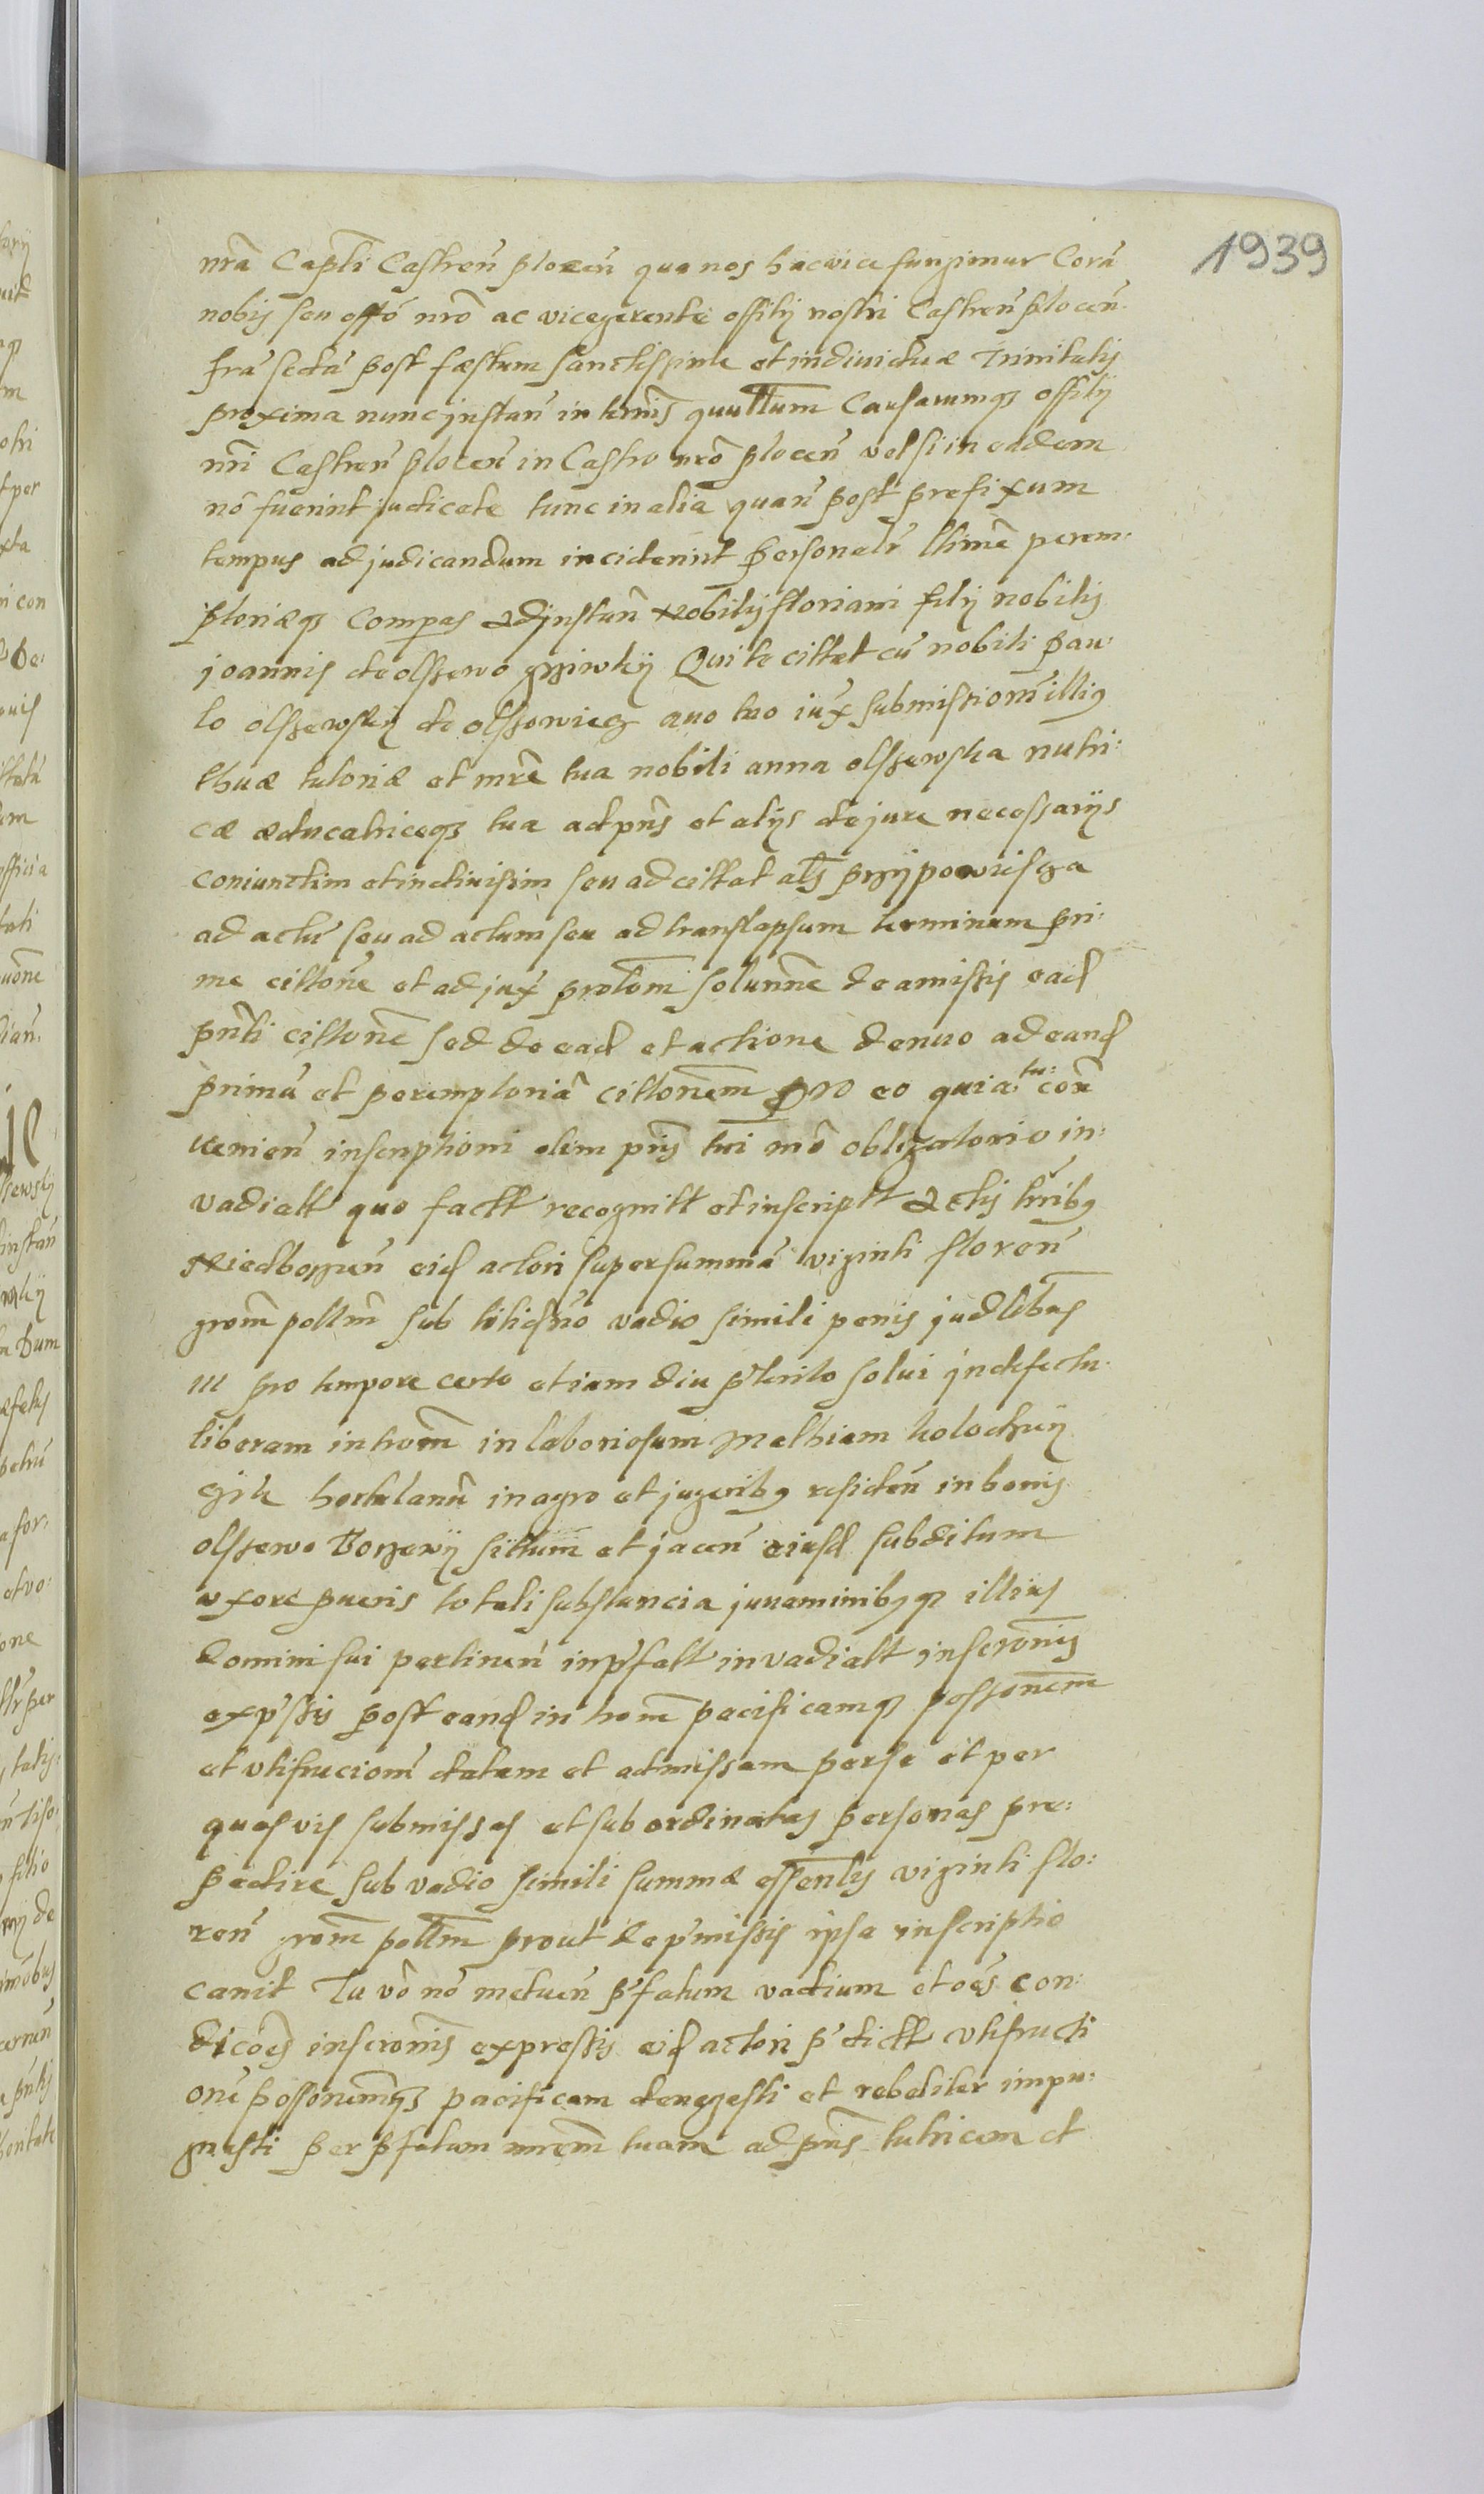 1939
nrã Capłi Castreń plocen̄ qua nos hac vice fungimur Corã
nobis seu offō nrō ac vicegerente offity nostri Castreń plocen̄
fra sectã post fæstum sanctissimæ et individuæ Trinitatis
proxima nunc jnstan̄ in termīs quultum Causarumq3 offity
nrĩ Castreń plocen̄ in Castro nrō plocen̄ vel si in eadem
nō fuerint judicate tunc in alia quan̄ post prefixum
tempus ad judicandum inciderint personalr̄ ltimē perem:
ptoriæq3 Compas ad jnstan̄ Nobilis floriani fily nobilis
joannis de olssewo Qui te cittat cū nobili pau:
lo olssewsky de olssowieg auo tuo iux submissionē illig
thuæ tutoriæ et mrē tua nobili anna olssewska nutri:
cæ æducatriceq3 tua ad pn̄s et alys de jure necessarys
coniunctim et indiuisim seu ad cittat als przypowiesga
ad actū seu ad actum seu ad translapsum terminum pri:
me cittonē et ad jux protom̄ solunnē de amissis ead
pn̄ti cittonē sed de ead et actione denuo ad eand
primã et peremptoriã cittonem pro eo quia tu: con
uenien̄ inscriptioni olim pris tui mō obligatorio in:
vadiatt quo factt recognitt et inscriptt actis trribg
Niedborzen̄ eid actori super summã viginti floren̄
grom̄ poltm̄ sub vadio simili penis judlibus
III pro tempore certo et iam diu pterito solui jn defectu
liberam introm̄ in laboriosum Mathiam kolodziy
gik hortulanū in agro et jugeribg residen̄ in bonis
olssewo Borzewy sittum et jacen̄ eiusd subditum
uxore pueris totali substancia juuaminibgq3 illius
domini sui pertinen̄ in pfatt invadiatt inscronis
exp̄ssis post eand introm̄ pacificamq3 possonem
et utifrucionē datam et admissam per se et per
quasvis submissas et subordinatas personas pre:
pedire sub vadio simili summæ essentis viginti flo:
ren̄ grom̄ poltm̄ prout de pmissis ipsa inscriptio
canit Tu vō nō metuen̄ pfatum vadium et oēs con:
dicōes inscronis expressis eid actori p̄dictt utifructi
onē possonemq3 pacificam denegasti et rebeliter impu:
gnasti per pfatam mrem tuam ad pn̄s tutricem et